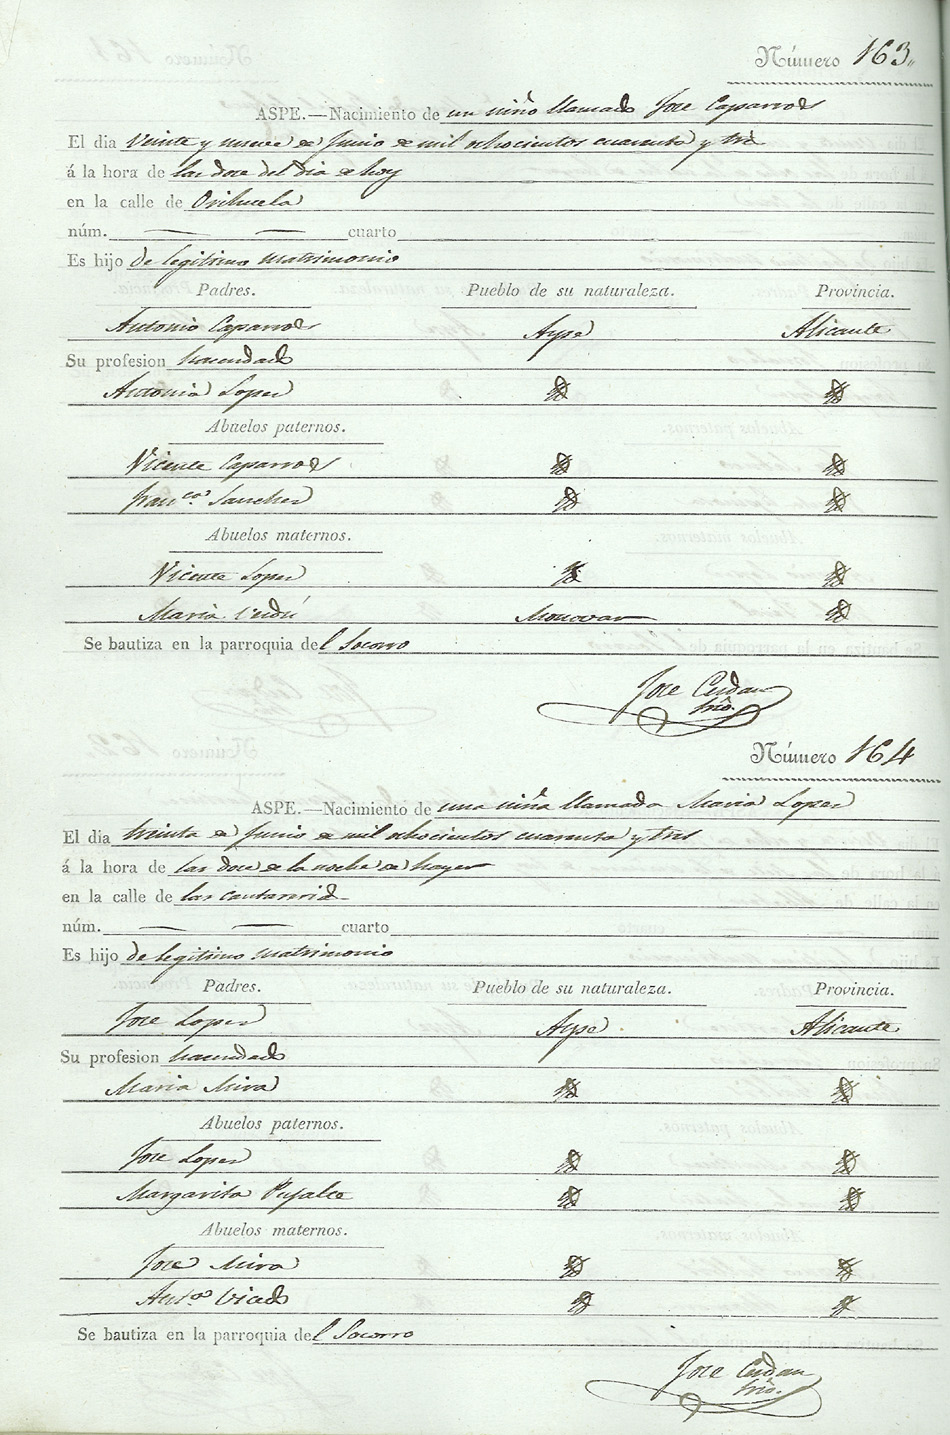 Número 163
ASPE.—Nacimiento de un niño llamado Jose Caparros
El dia Veinte y nueve de Junio de mil ochocientos cuarenta y tres
á la hora de las doce del dia de hoy
en la calle de Orihuela
núm. — — cuarto
Es hijo de legitimo matrimonio
Padres. Pueblo de su naturaleza. Provincia.
Antonio Caparros Aspe Alicante
Su profesion hacendado
Antonia Lopez
Abuelos paternos.
Vicente Caparros
Fran.ca Sanchez
Abuelos maternos.
Vicente Lopez
Maria Verdú Monovar
Se bautiza en la parroquia del Socorro
Jose Cerdan
Srio.
Número 164
ASPE.—Nacimiento de una niña llamada Maria Lopez
El dia treinta de Junio de mil ochocientos cuarenta y tres
á la hora de las doce de la noche de hayer
en la calle de las
núm. — — cuarto
Es hijo de legitimo matrimonio
Padres. Pueblo de su naturaleza. Provincia.
Jose Lopez Aspe Alicante
Su profesion hacendado
Maria Mira
Abuelos paternos.
Jose Lopez
Margarita Pujalte
Abuelos maternos.
Jose Mira
Se bautiza en la parroquia del Socorro
Jose Cerdan
Srio.